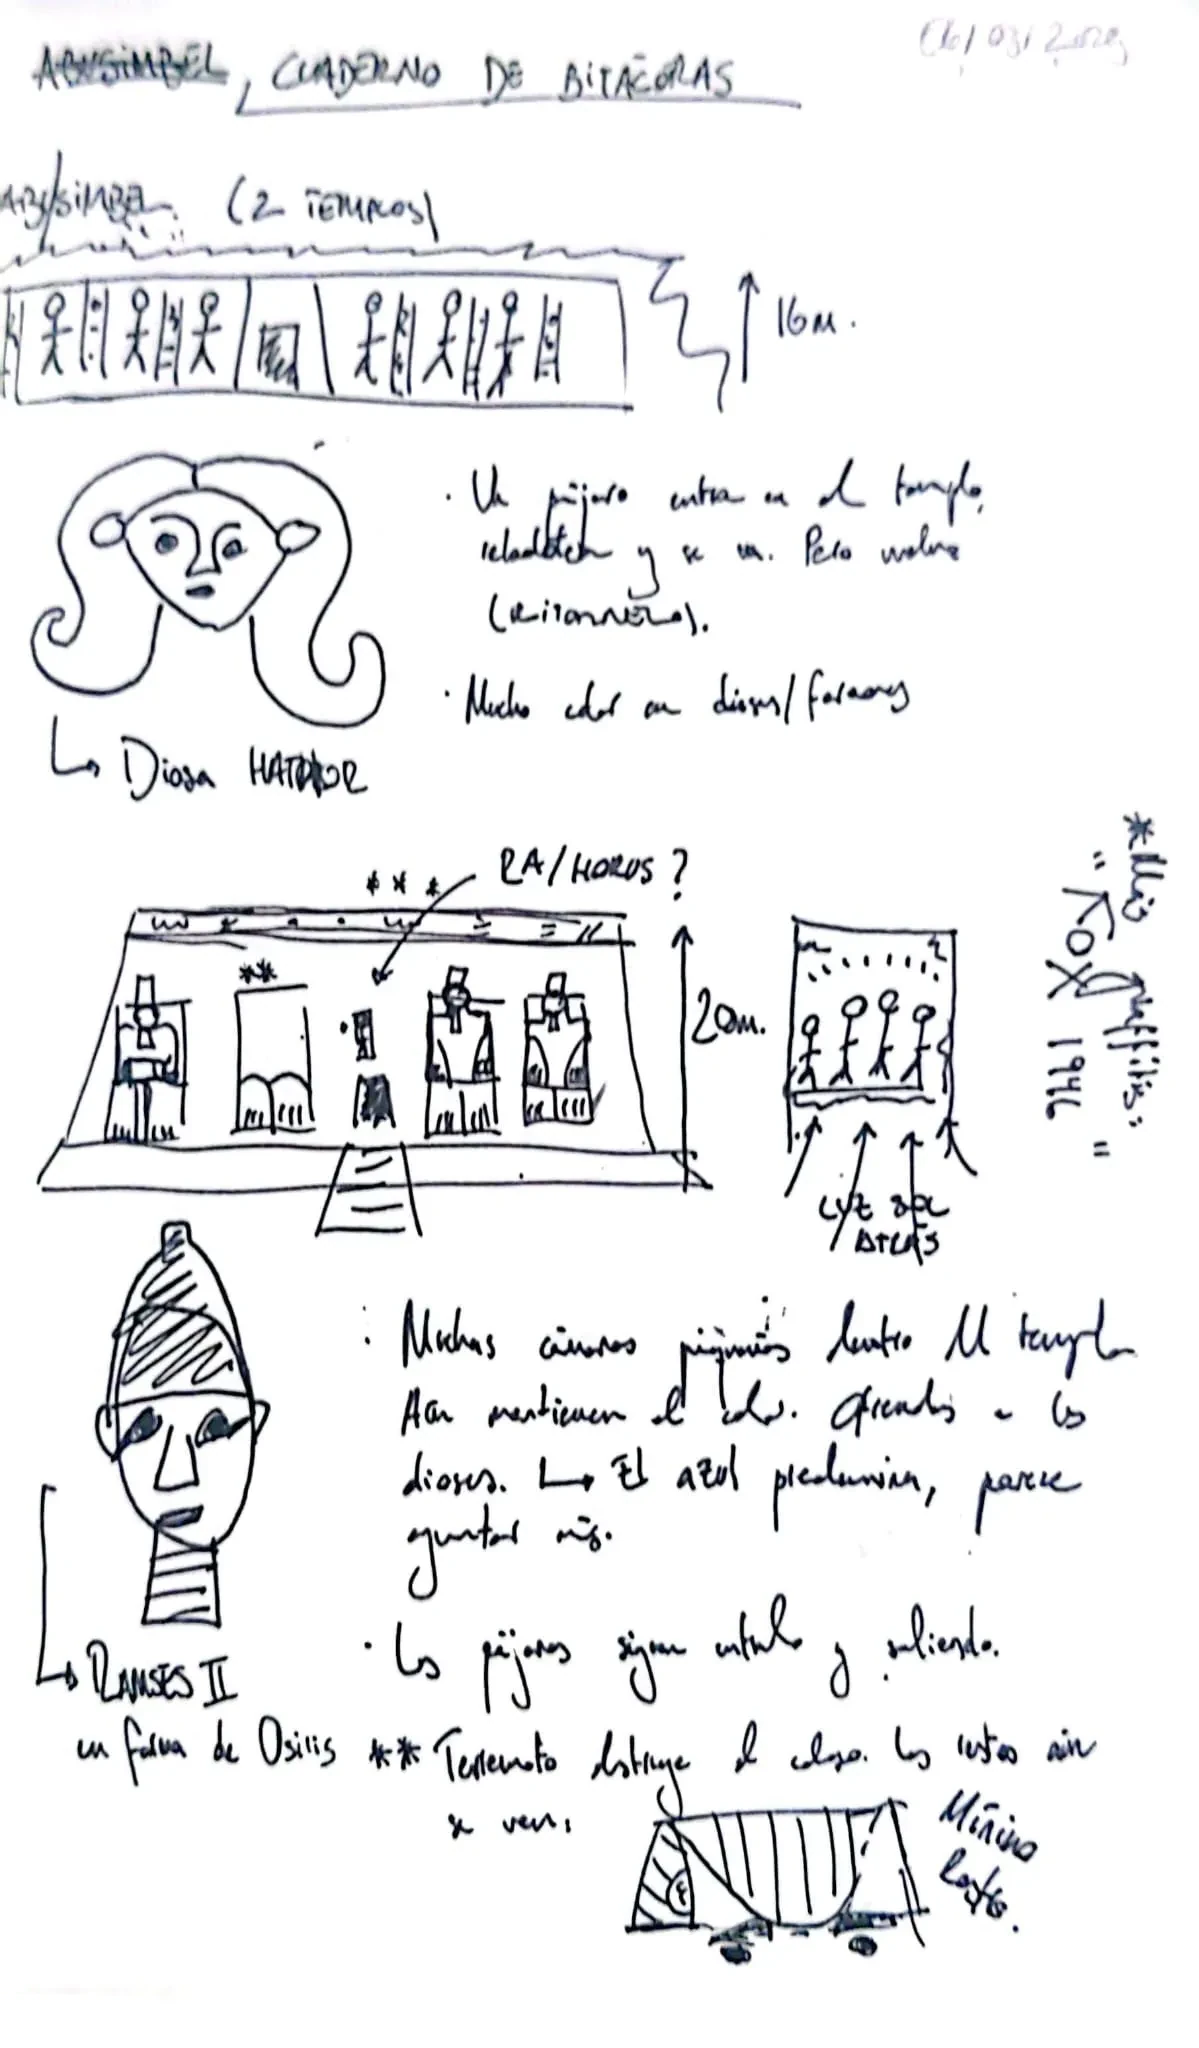 ABUSIMBEL, CUADERNO DE BITÁCORAS
ABUSIMBEL (2 TEMPLOS)
16m.
· Un pájaro entra en el templo,
y se va. Pero vuelve
(RITORNELLO).
· Mucho color en dioses/faraones
↳ Diosa HATHOR
* * *
RA/HORUS?
**
20m.
LUZ SOL
DETRÁS
*Más graffitis:
" FOX 1946 "
: Muchas cámaras pequeñas dentro del templo
Aún mantienen el color. Ofrendas a los
dioses. ↳ El azul predomina, parece
aguantar más.
· Los pájaros siguen entrando y saliendo.
↳ RAMSES II
en forma de Osiris
** Terremoto destruye el coloso. Los restos aún
se ven.
Mínimo
Rostro.